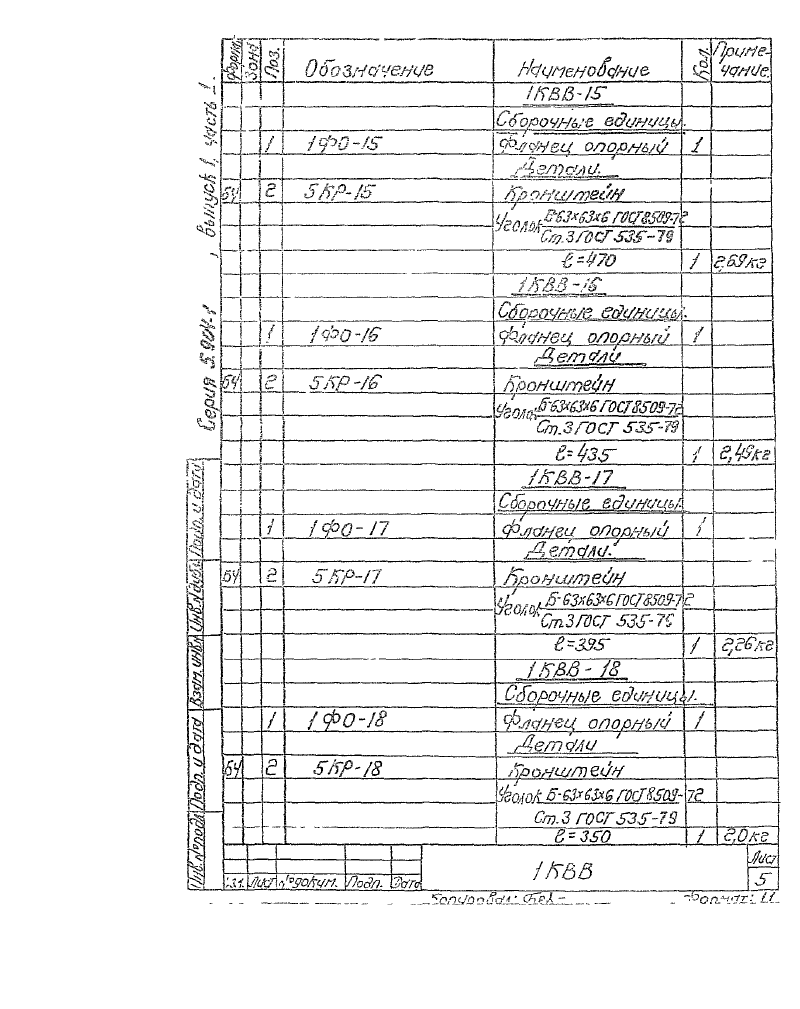 Серия 5.904-1 , Выпуск 1, часть 1.
Форма Зона Поз. Обозначение Наименование Кол. Приме-
чание
1КВВ-15
Сборочные единицы.
1 1ФО-15 Фланец опорный 1
Детали.
БЧ 2 5КР-15 Кронштейн
Уголок Б-63×63×6 ГОСТ 8509-72
Ст.3 ГОСТ 535-79
ℓ=470 1 2,69кг
1КВВ-16
Сборочные единицы.
1 1ФО-16 Фланец опорный 1
Детали
БЧ 2 5КР-16 Кронштейн
Уголок Б-63×63×6 ГОСТ 8509-72
Ст.3 ГОСТ 535-79
ℓ=435 1 2,49кг
1КВВ-17
Сборочные единицы.
1 1ФО-17 Фланец опорный 1
Детали.
БЧ 2 5КР-17 Кронштейн
Уголок Б-63×63×6 ГОСТ 8509-72
Ст.3 ГОСТ 535-79
ℓ=395 1 2,26кг
1КВВ-18
Сборочные единицы.
1 1ФО-18 Фланец опорный 1
Детали
БЧ 2 5КР-18 Кронштейн
Уголок Б-63×63×6 ГОСТ 8509-72
Ст.3 ГОСТ 535-79
ℓ=350 1 2,0кг
Инв.№ подл. Подп. и дата Взам. инв.№ Инв.№ дубл. Подп. и дата
Изм. Лист №докум. Подп. Дата
1КВВ
Лист
5
Копировал: Формат: 11